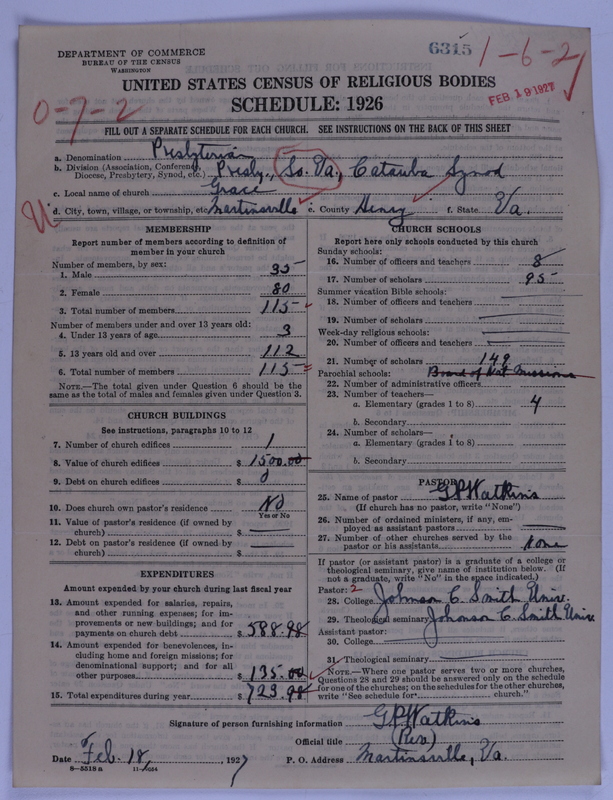 DEPARTMENT OF COMMERCE
BUREAU OF THE CENSUS
WASHINGTON
6315
1-6-2
UNITED STATES CENSUS OF RELIGIOUS BODIES
SCHEDULE: 1926
FEB 19 1927
0-7-2
FILL OUT A SEPARATE SCHEDULE FOR EACH CHURCH. SEE INSTRUCTIONS ON THE BACK OF THIS SHEET
a. Denomination Presbyterian
b. Division (Association, Conference, Diocese, Presbytery, Synod, etc.) Presby., So. Va., Catawba Synod
c. Local name of church Grace
d. City, town, village, or township, etc. Martinsville e. County Henry f. State Va.
MEMBERSHIP
Report number of members according to definition of
member in your church
Number of members, by sex:
1. Male 35
2. Female 80
3. Total number of members 115
Number of members under and over 13 years old:
4. Under 13 years of age 3
5. 13 years old and over 112
6. Total number of members 115
NOTE.—The total given under Question 6 should be the
same as the total of males and females given under Question 3.
CHURCH BUILDINGS
See instructions, paragraphs 10 to 12
7. Number of church edifices 1
8. Value of church edifices $ 1500.00
9. Debt on church edifices $ 0
10. Does church own pastor's residence No
Yes or No
11. Value of pastor's residence (if owned by
church) $
12. Debt on pastor's residence (if owned by
church) $
EXPENDITURES
Amount expended by your church during last fiscal year
13. Amount expended for salaries, repairs,
and other running expenses; for im-
provements or new buildings; and for
payments on church debt $ 588.98
14. Amount expended for benevolences, in-
cluding home and foreign missions; for
denominational support; and for all
other purposes $ 135.00
15. Total expenditures during year $ 723.98
CHURCH SCHOOLS
Report here only schools conducted by this church
Sunday schools:
16. Number of officers and teachers 8
17. Number of scholars 95
Summer vacation Bible schools:
18. Number of officers and teachers
19. Number of scholars
Week-day religious schools:
20. Number of officers and teachers
21. Number of scholars 149
Parochial schools: Board of Nat. Missions
22. Number of administrative officers
23. Number of teachers—
a. Elementary (grades 1 to 8) 4
b. Secondary
24. Number of scholars—
a. Elementary (grades 1 to 8)
b. Secondary
PASTOR
25. Name of pastor G.P. Watkins
(If church has no pastor, write "None")
26. Number of ordained ministers, if any, em-
ployed as assistant pastors
27. Number of other churches served by the
pastor or his assistants None
If pastor (or assistant pastor) is a graduate of a college or
theological seminary, give name of institution below. (If
not a graduate, write "No" in the space indicated.)
Pastor: 2
28. College Johnson C. Smith Univ.
29. Theological seminary Johnson C. Smith Univ.
Assistant pastor:
30. College
31. Theological seminary
NOTE.—Where one pastor serves two or more churches,
Questions 28 and 29 should be answered only on the schedule
for one of the churches; on the schedules for the other churches,
write "See schedule for church."
Signature of person furnishing information G.P. Watkins
Official title (Rev.)
Date Feb. 18, 1927 P. O. Address Martinsville, Va.
8-5518 a